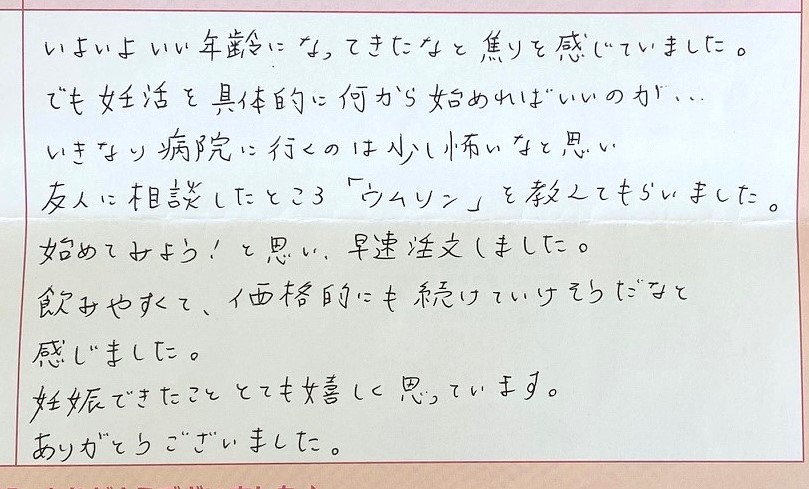 いよいよいい年齢になってきたなと焦りを感じていました。
でも妊活を具体的に何から始めればいいのか...
いきなり病院に行くのは少し怖いなと思い
友人に相談したところ「ウムリン」を教えてもらいました。
始めてみよう!と思い、早速注文しました。
飲みやすくて、価格的にも続けていけそうだなと
感じました。
妊娠できたこととても嬉しく思っています。
ありがとうございました。